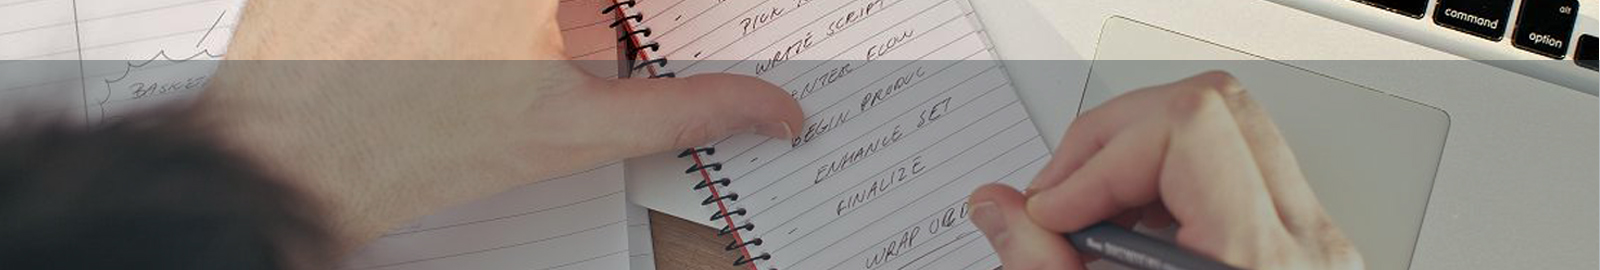 PICK
WRATE SCRIPT
ENTER FLOW
BEGIN PRODUC
ENHANCE SET
FINALIZE
WRAP
BASKET
command
alt
option